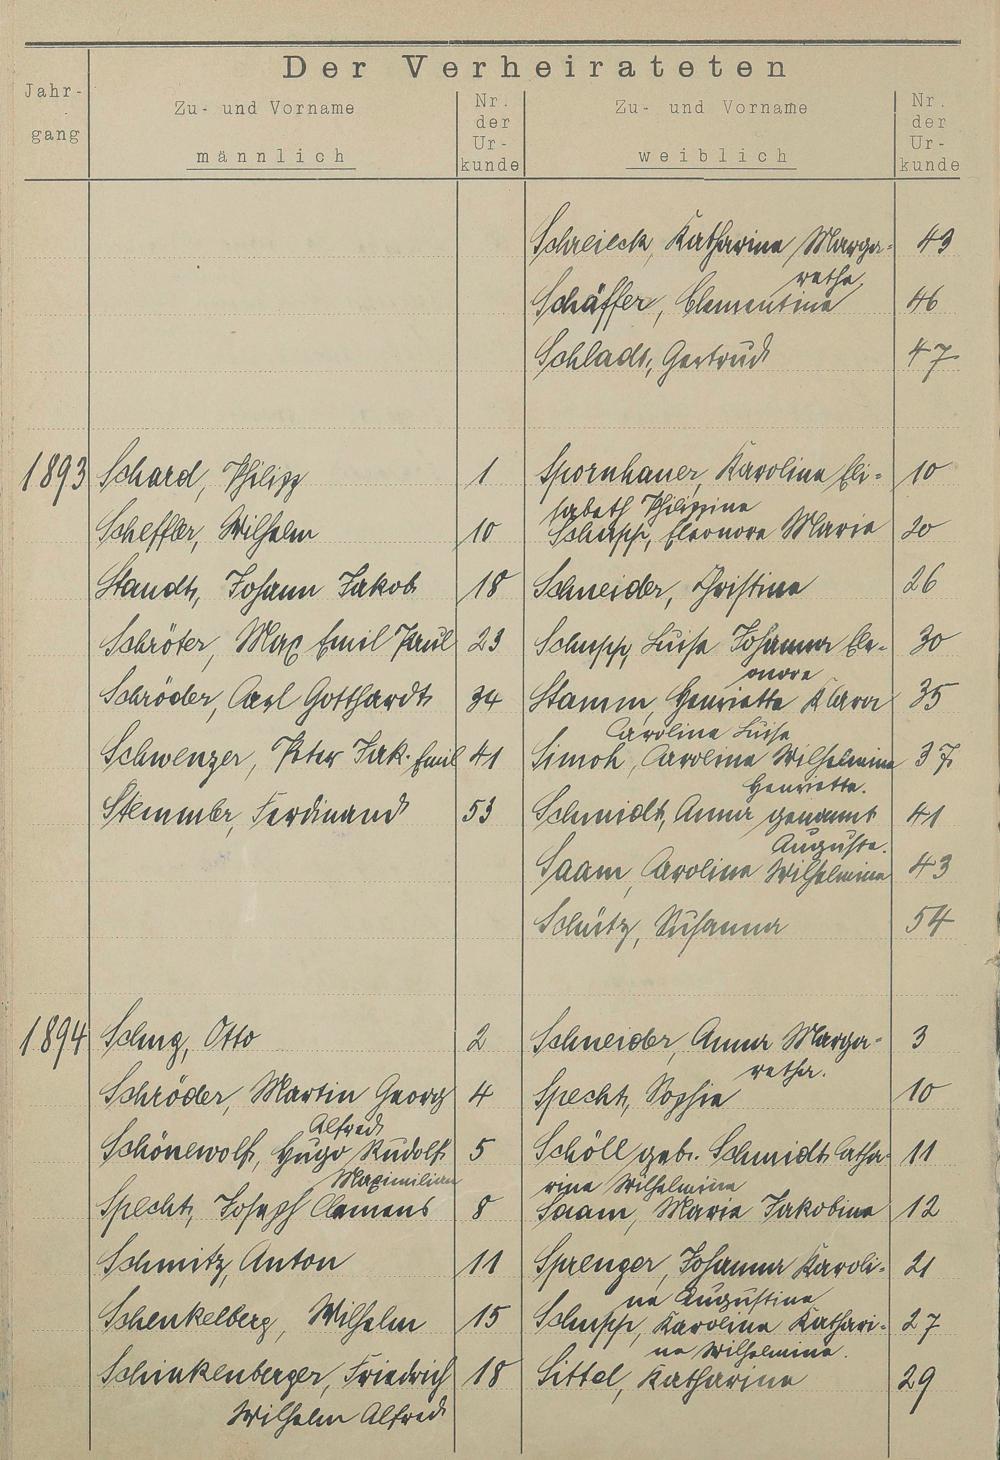 Der Verheirateten
Jahr-
gang
Zu- und Vorname
männlich
Nr.
der
Ur-
kunde
Zu- und Vorname
weiblich
Nr.
der
Ur-
kunde
Schreieck, Katharine Marga- 43
retha
Schäffer, Clementine 46
Schladt, Gertrud 47
1893 Schard, Philipp 1 Spornhauer, Karoline Eli- 10
sabeth Philippine
Scheffler, Wilhelm 10 Schupp, Eleonore Marie 20
Standt, Johann Jakob 18 Schneider, Christine 26
Schröter, Max Emil Paul 23 Schupp, Luise Johanna Ele- 30
onore
Schröder, Carl Gotthardt 34 Stamm, Henriette Klara 35
Caroline Luise
Schwenzer, Peter Jak. Emil 41 Simon, Caroline Wilhelmine 37
Henriette.
Stemmler, Ferdinand 53 Schmidt, Anna genannt 41
Auguste.
Saam, Caroline Wilhelmine 43
Schütz, Susanna 54
1894 Schug, Otto 2 Schneider, Anna Marga- 3
retha.
Schröder, Martin Georg 4 Specht, Sophie 10
Alfred
Schönewolf, Hugo Rudolf 5 Schöll geb. Schmidt Catha- 11
Maximilian rine Wilhelmine
Specht, Joseph Clemens 8 Saam, Marie Jakobine 12
Schmitz, Anton 11 Sprenger, Johanna Karoli- 21
ne Augustine
Schenkelberg, Wilhelm 15 Schupp, Karoline Kathari- 27
ne Wilhelmine.
Schinkenberger, Friedrich 18 Sittel, Katharine 29
Wilhelm Alfred